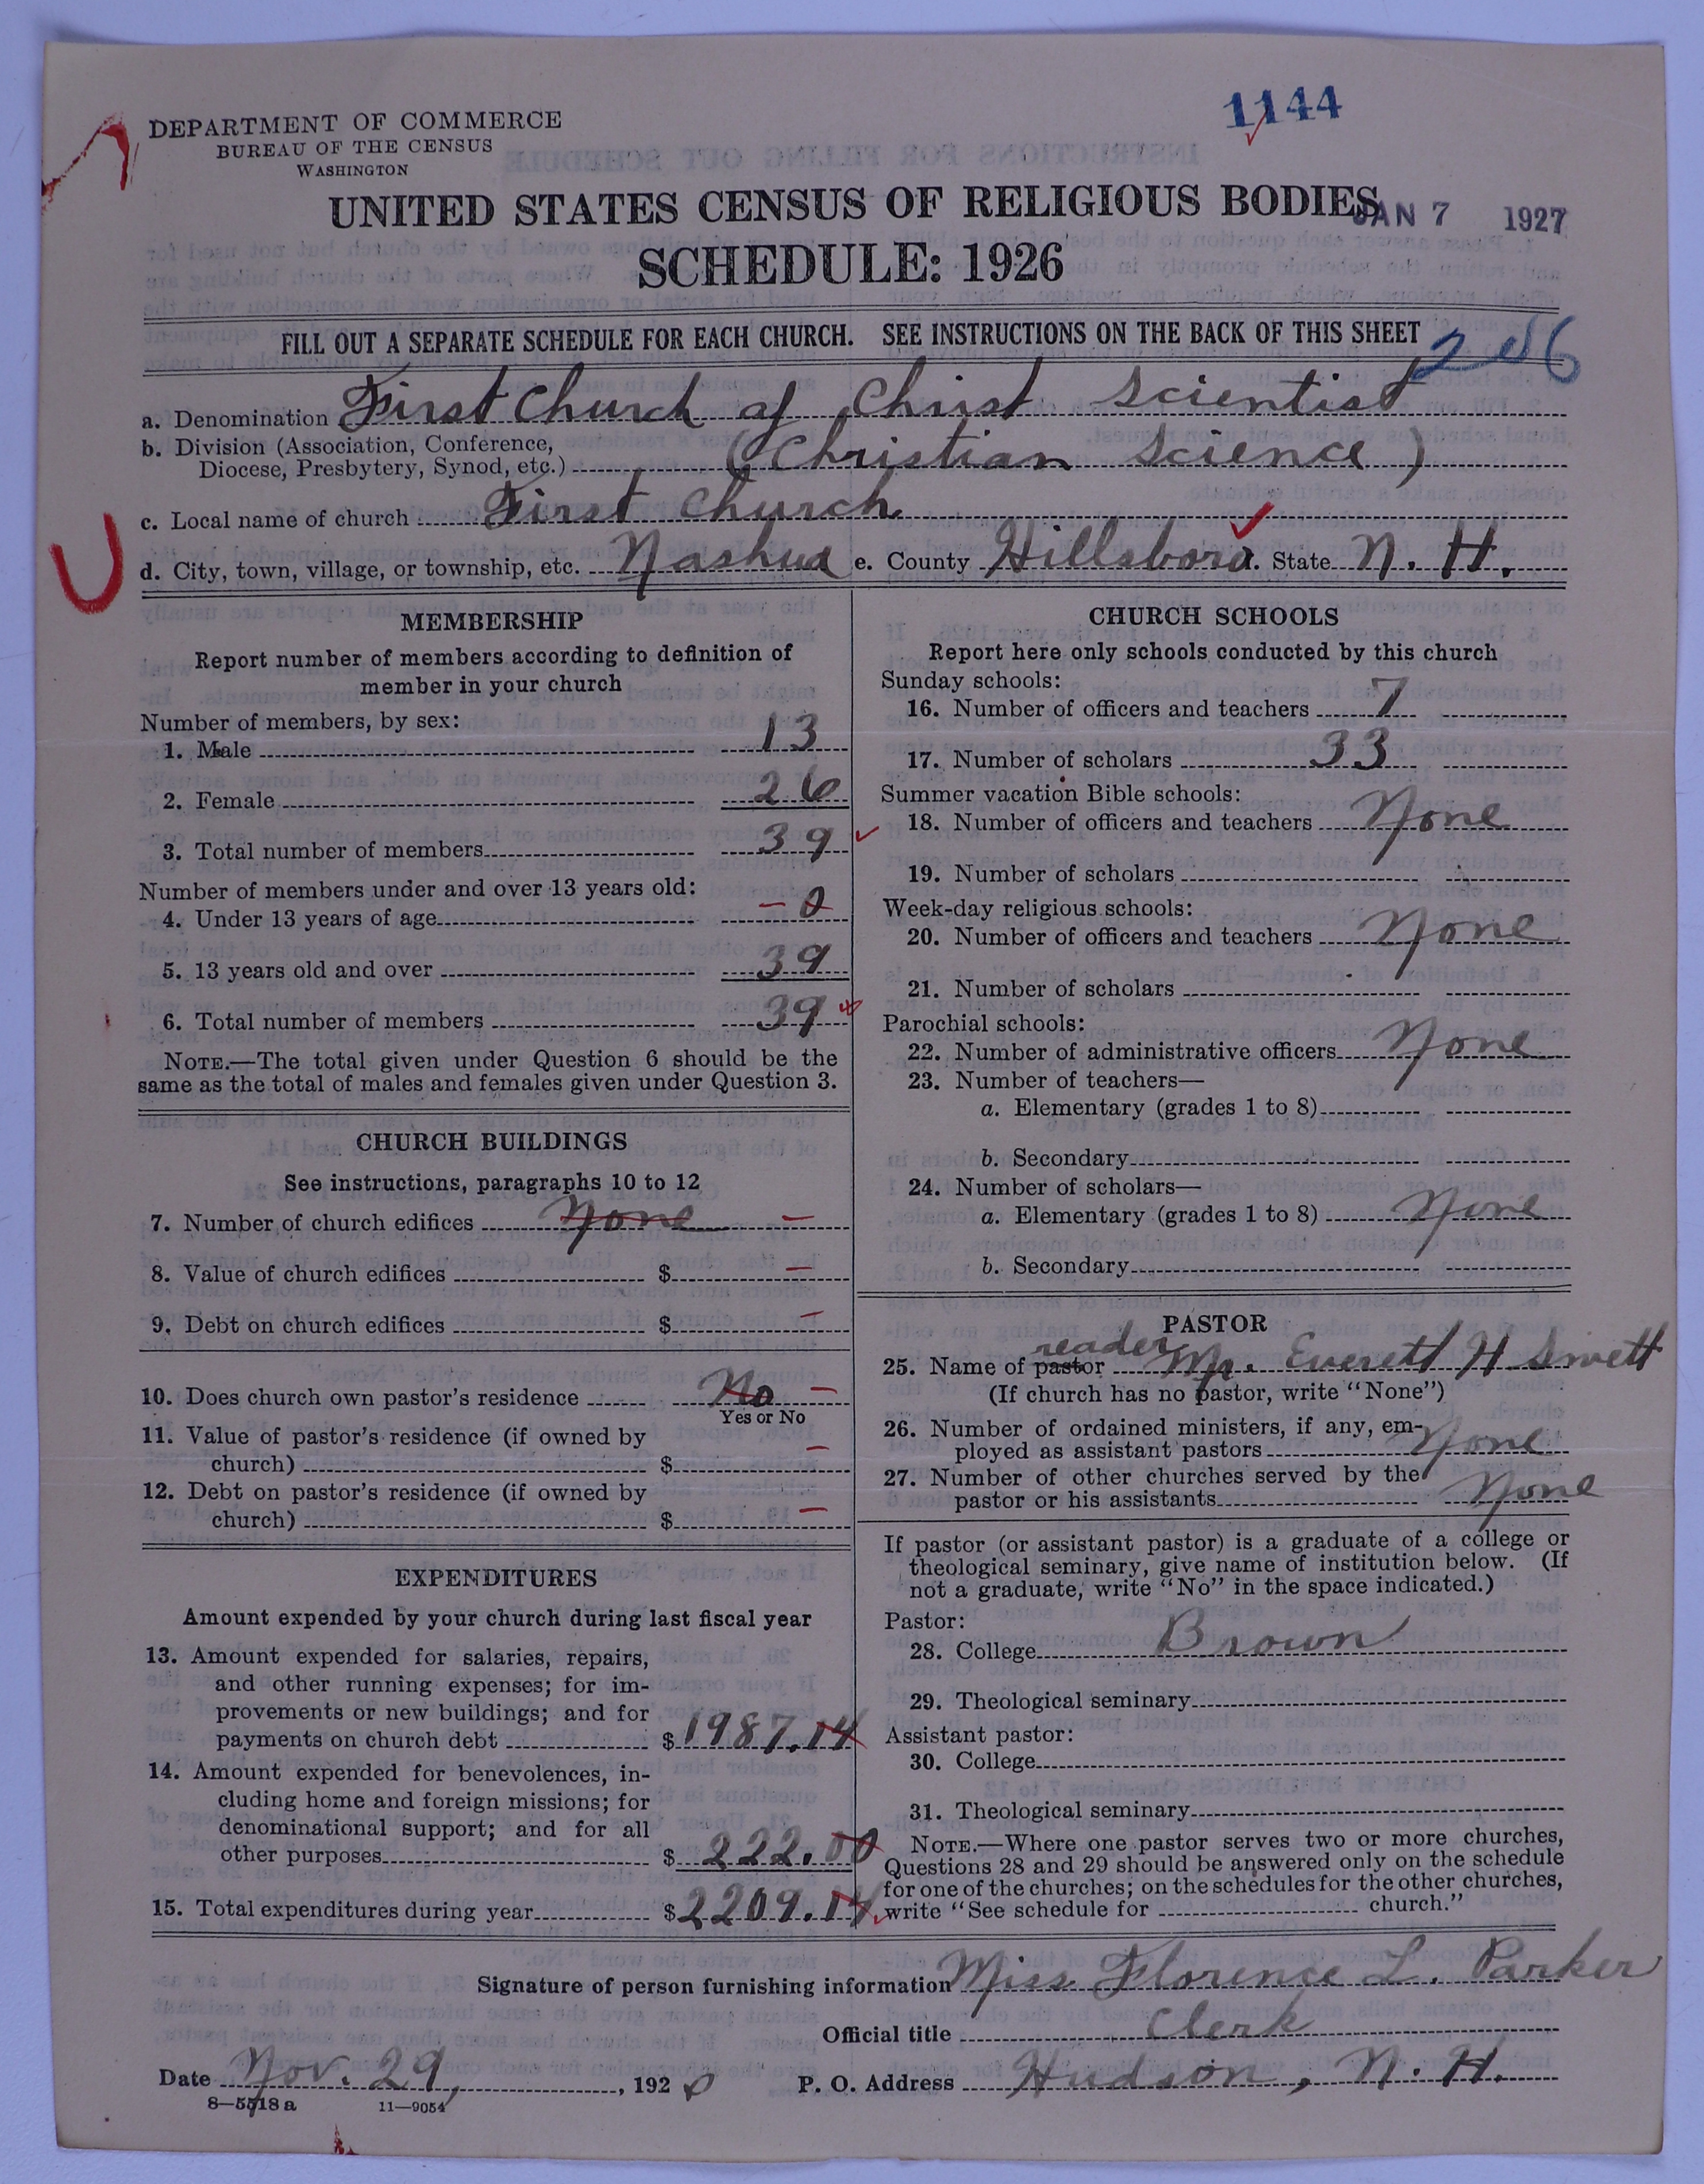 1144
DEPARTMENT OF COMMERCE
BUREAU OF THE CENSUS
WASHINGTON
UNITED STATES CENSUS OF RELIGIOUS BODIES
JAN 7 1927
SCHEDULE: 1926
FILL OUT A SEPARATE SCHEDULE FOR EACH CHURCH. SEE INSTRUCTIONS ON THE BACK OF THIS SHEET
a. Denomination First Church of Christ Scientist
b. Division (Association, Conference,
Diocese, Presbytery, Synod, etc.) (Christian Science)
c. Local name of church First Church
d. City, town, village, or township, etc. Nashua e. County Hillsboro. State N. H.
MEMBERSHIP
Report number of members according to definition of
member in your church
Number of members, by sex:
1. Male 13
2. Female 26
3. Total number of members 39
Number of members under and over 13 years old:
4. Under 13 years of age – 0
5. 13 years old and over 39
6. Total number of members 39
NOTE.—The total given under Question 6 should be the
same as the total of males and females given under Question 3.
CHURCH BUILDINGS
See instructions, paragraphs 10 to 12
7. Number of church edifices None –
8. Value of church edifices $ –
9. Debt on church edifices $ –
10. Does church own pastor's residence No –
Yes or No
11. Value of pastor's residence (if owned by
church) $ –
12. Debt on pastor's residence (if owned by
church) $ –
EXPENDITURES
Amount expended by your church during last fiscal year
13. Amount expended for salaries, repairs,
and other running expenses; for im-
provements or new buildings; and for
payments on church debt $1987.14
14. Amount expended for benevolences, in-
cluding home and foreign missions; for
denominational support; and for all
other purposes $222.00
15. Total expenditures during year $2209.14
CHURCH SCHOOLS
Report here only schools conducted by this church
Sunday schools:
16. Number of officers and teachers 7
17. Number of scholars 33
Summer vacation Bible schools:
18. Number of officers and teachers None
19. Number of scholars
Week-day religious schools:
20. Number of officers and teachers None
21. Number of scholars
Parochial schools:
22. Number of administrative officers None
23. Number of teachers—
a. Elementary (grades 1 to 8)
b. Secondary
24. Number of scholars—
a. Elementary (grades 1 to 8) None
b. Secondary
PASTOR
reader
25. Name of pastor Mr. Everett H Swett
(If church has no pastor, write "None")
26. Number of ordained ministers, if any, em-
ployed as assistant pastors None
27. Number of other churches served by the
pastor or his assistants None
If pastor (or assistant pastor) is a graduate of a college or
theological seminary, give name of institution below. (If
not a graduate, write "No" in the space indicated.)
Pastor:
28. College Brown
29. Theological seminary
Assistant pastor:
30. College
31. Theological seminary
NOTE.—Where one pastor serves two or more churches,
Questions 28 and 29 should be answered only on the schedule
for one of the churches; on the schedules for the other churches,
write "See schedule for church."
Signature of person furnishing information Miss Florence L. Parker
Official title Clerk
Date Nov. 29, , 192 P. O. Address Hudson, N. H.
8—5518a 11—9054